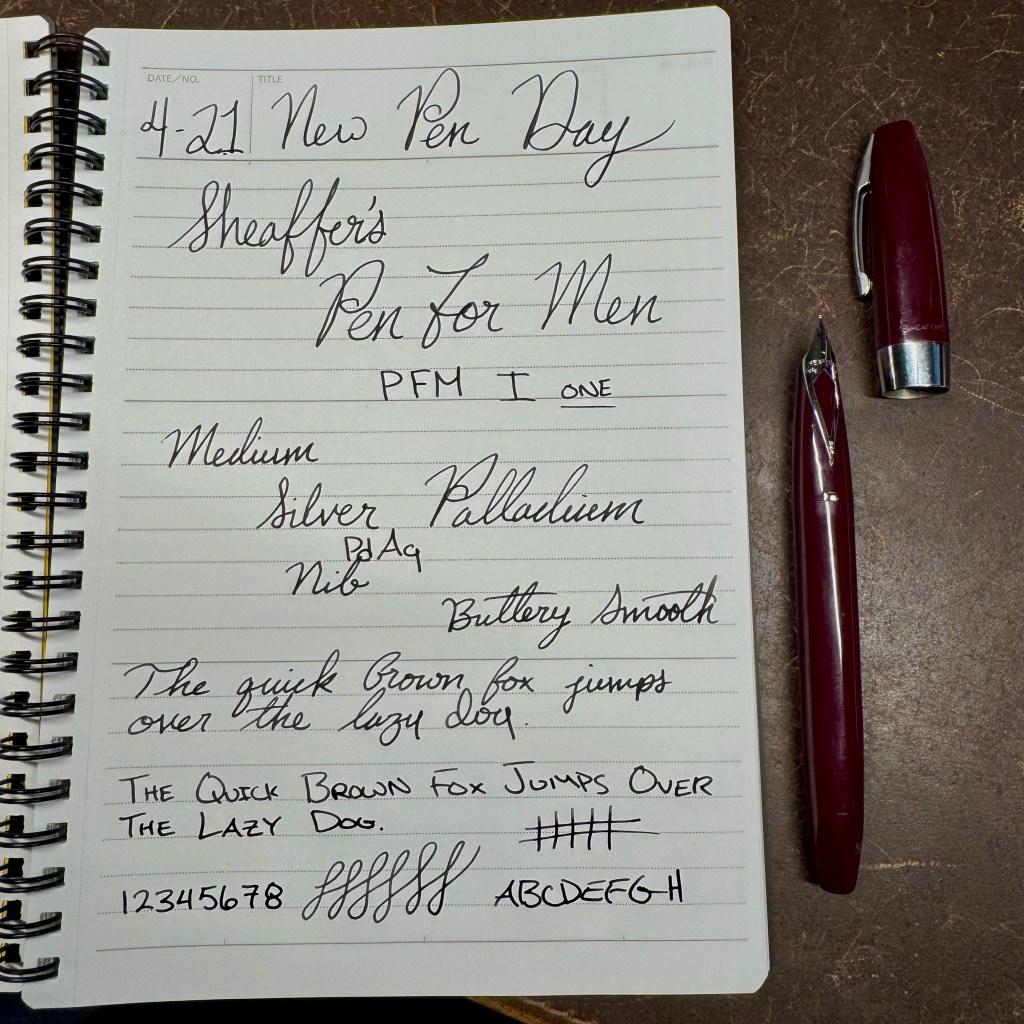 DATE/NO. TITLE
4-21 New Pen Day
Sheaffer's
Pen For Men
PFM I ONE
Medium
Silver Palladium
PdAg
Nib
Buttery Smooth
The quick brown fox jumps
over the lazy dog.
THE QUICK BROWN FOX JUMPS OVER
THE LAZY DOG.
12345678 ABCDEFGH